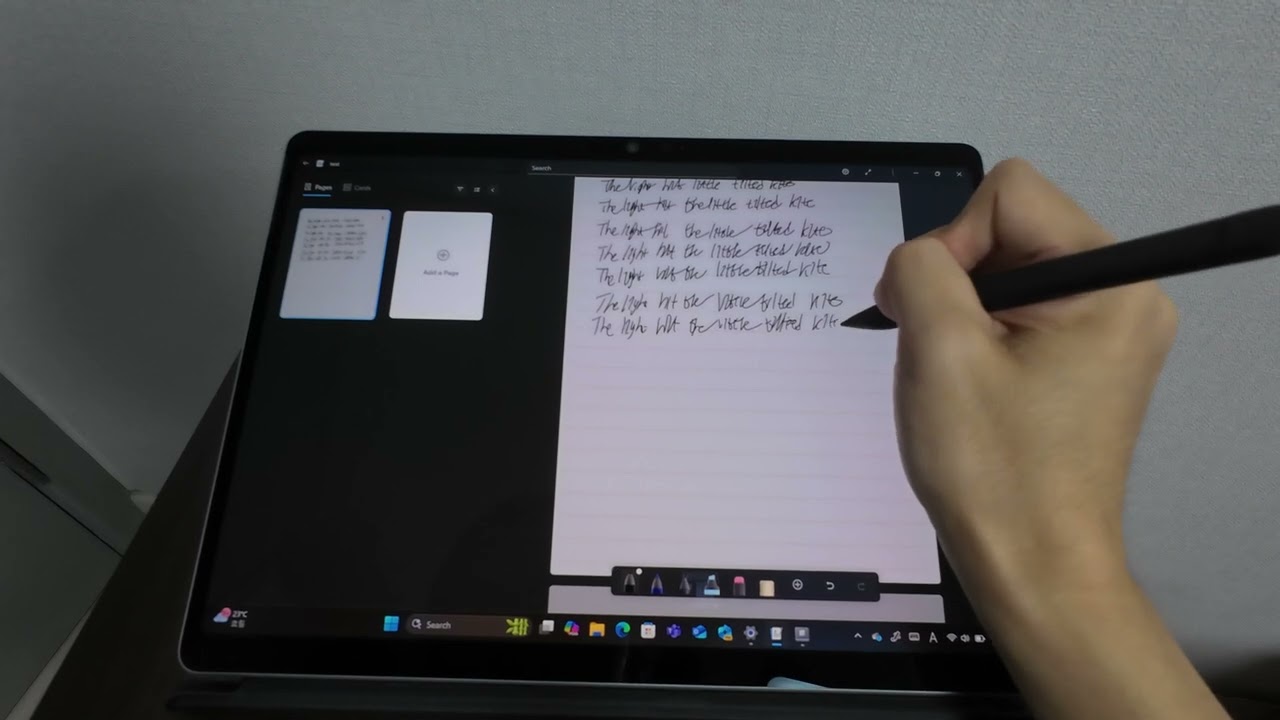 test
Search
Pages
Cards
The light hit little tilted kite
The light hit the little tilted kite
The light hit the little tilted kite
The light hit the little tilted kite
The light hit the little tilted kite
The light hit the little tilted kite
The light hit the little tilted kite
Add a Page
23°C
Search
A